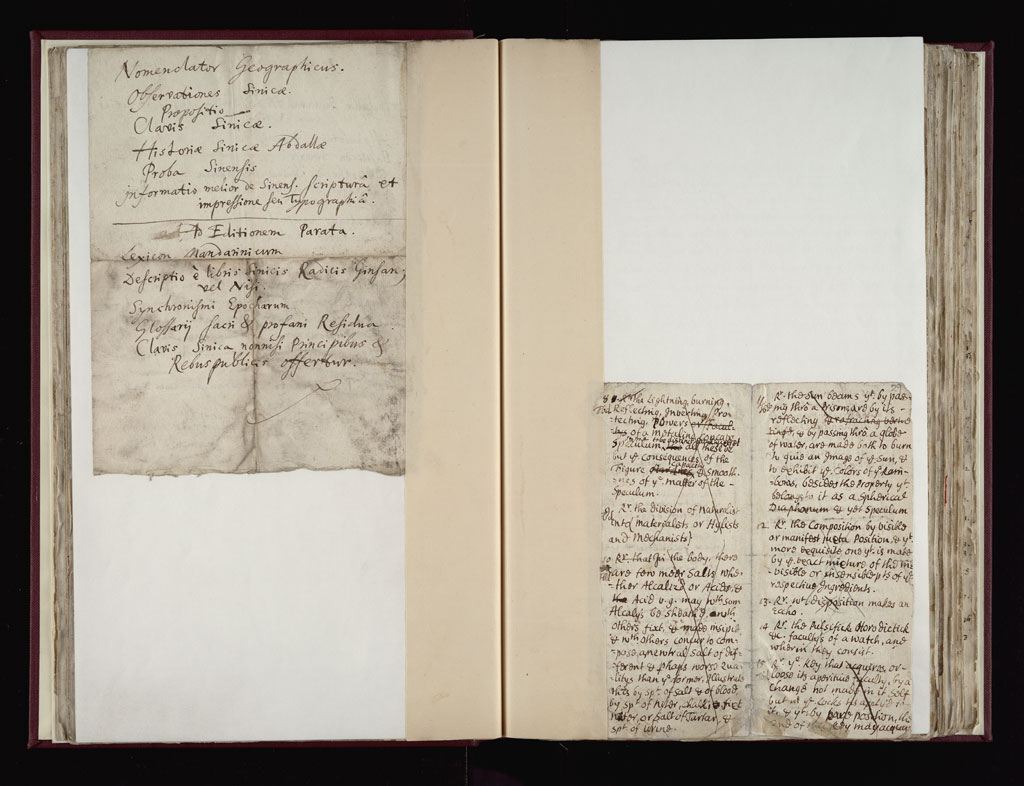 Nomenclator Geographicus.
Observationes Sinicæ.
Propositio
Clavis Sinicæ.
Historiæ Sinicæ Abdallæ
Proba Sinensis
informatio melior de Sinens. scripturâ et
impressione seu typographiâ.
Ad Editionem Parata.
Lexicon Mandarinicum
Descriptio è libris Sinicis Radicis Ginsan;
vel Nisi.
Synchronismi Epocharum
Glossarij sacri & profani Residua.
Clavis Sinica nonnisi Principibus &
Rebuspublicis offertur.
8 Rr. the Lightning, burning,
Reflecting, Inverting, Pro-
-tecting, Powers
of a metalline Concave
Speculum, all these be
but ye. consequences of the
Figure & smooth-
-nes of ye matter of the
Speculum.
Rr. the division of Naturalists
into materialists or Hylists
and Mechanists}
10 Rr. that in the body, there
are few meer Salts whe-
-ther Alcalizd or Acids, &
Acid v.g. may wth som
Alcaly, be sheath'd, wth
others fixt, & made insipid
& wth others concur to com-
-pose a newtral Salt of dif-
-ferent & phaps worse qua-
-litys than ye former. Illustrate
this by spt of salt & of blood
by spt of niter, & fixt
niter, or Salt of Tartar, &
spt of urine.
11 Rr. the Sun beams yt. by pas-
-sing thrô a Prisme are by its
reflecting
& by passing thrô a globe
of water, are made both to burn
to give an Image of ye Sun, &
to exhibit ye. Colors of ye Rain-
-bows, besides the Property yt.
belongs to it as a Spherical
Diaphanum & yet Speculum
12. Rr. the Composition by visible
or manifest juxta Position, & yt.
more exquisite one yt. is made
by ye. exact mixture of the in-
-visible or insensible pts of ye.
respective Ingredients.
13. Rr. wt. disposition makes an
Eccho.
14 Rr. the Pulsifick, Horodictick
&c. facultys of a watch, and
wherin they consist.
15 Rr. ye. Key that acquires, or
loose its aperitive faculty, by a
change not made in it self
but in ye Locks its apply'd to
it. & yt. by bare position, the
may acquire